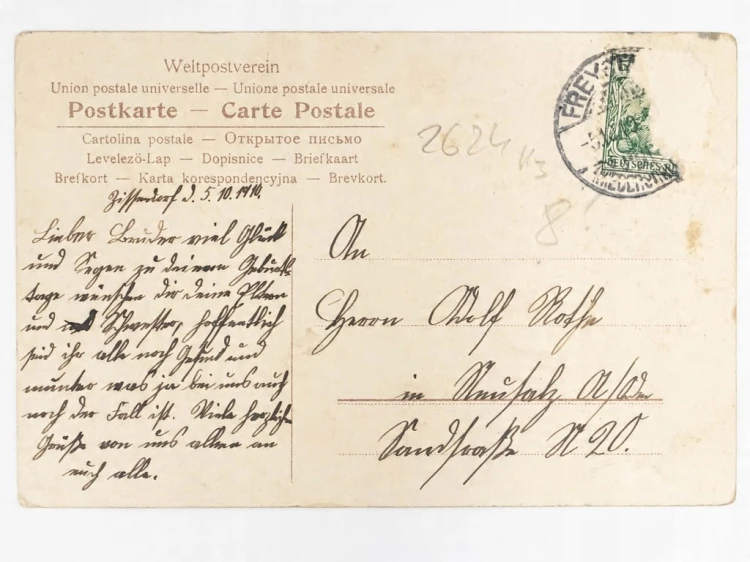 Weltpostverein
Union postale universelle — Unione postale universale
Postkarte — Carte Postale
Cartolina postale — Открытое письмо
Levelező-Lap — Dopisnice — Briefkaart
Brefkort — Karta korespondencyjna — Brevkort.
d. 5.10.1910.
Lieber Bruder viel Glück
und Segen zu deinem Geburts-
tage wünschen dir deine Eltern
und Schwester, hoffentlich
seid ihr alle noch Gesund und
munter was ja bei uns auch
noch der Fall ist. Viele herzliche
Grüße von uns allen an
euch alle.
An
Herrn Adolf Rothe
in Neusalz A/Oder
Sandstraße N 20.
2624
8
FREYST
DEUTSCHES R